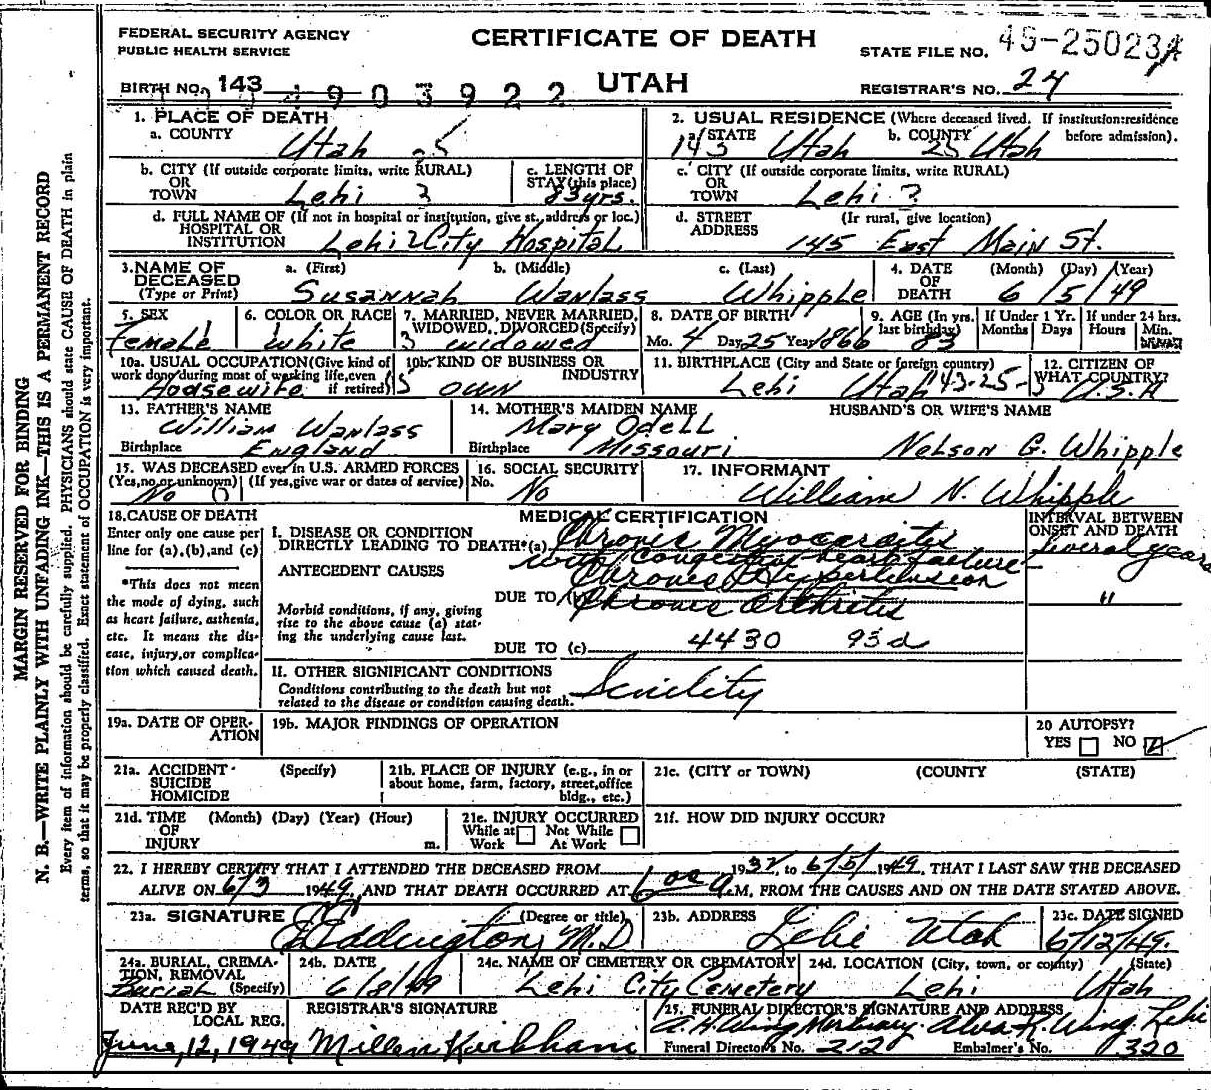 FEDERAL SECURITY AGENCY
PUBLIC HEALTH SERVICE
CERTIFICATE OF DEATH
STATE FILE NO. 49-25023A
BIRTH NO. 143 4903922
UTAH
REGISTRAR'S NO. 24
1. PLACE OF DEATH
a. COUNTY Utah 25
2. USUAL RESIDENCE (Where deceased lived. If institution:residence before admission).
a. STATE 143 Utah b. COUNTY 25 Utah
b. CITY (If outside corporate limits, write RURAL) OR TOWN Lehi 3
c. LENGTH OF STAY (this place) 83 yrs.
c. CITY (If outside corporate limits, write RURAL) OR TOWN Lehi 3
d. FULL NAME OF (If not in hospital or institution, give st., address or loc.) HOSPITAL OR INSTITUTION Lehi 2 City Hospital
d. STREET ADDRESS (Ir rural, give location) 145 East Main St.
3. NAME OF DECEASED (Type or Print)
a. (First) Susannah b. (Middle) Wanlass c. (Last) Whipple
4. DATE OF DEATH (Month) (Day) (Year) 6/5/49
5. SEX Female
6. COLOR OR RACE White
7. MARRIED, NEVER MARRIED, WIDOWED, DIVORCED (Specify) 3 widowed
8. DATE OF BIRTH Mo. 4 Day 25 Year 1866
9. AGE (In yrs. last birthday) 83
If Under 1 Yr. Months Days
If under 24 hrs. Hours Min.
10a. USUAL OCCUPATION (Give kind of work done during most of working life, even if retired) Housewife
10b. KIND OF BUSINESS OR INDUSTRY own
11. BIRTHPLACE (City and State or foreign country) Lehi Utah 143-25-3
12. CITIZEN OF WHAT COUNTRY? U.S.A
13. FATHER'S NAME William Wanlass
Birthplace England
14. MOTHER'S MAIDEN NAME Mary Odell
Birthplace Missouri
HUSBAND'S OR WIFE'S NAME
Nelson G. Whipple
15. WAS DECEASED ever in U.S. ARMED FORCES (Yes, no, or unknown) (If yes, give war or dates of service) No 0
16. SOCIAL SECURITY No. No
17. INFORMANT William N. Whipple
18. CAUSE OF DEATH
Enter only one cause per line for (a), (b), and (c)
*This does not mean the mode of dying, such as heart failure, asthenia, etc. It means the disease, injury, or complication which caused death.
MEDICAL CERTIFICATION
I. DISEASE OR CONDITION DIRECTLY LEADING TO DEATH*(a) Chronic Myocarditis
with congestive heart failure
ANTECEDENT CAUSES Chronic Hypertension
DUE TO (b) Chronic Arthritis
Morbid conditions, if any, giving rise to the above cause (a) stating the underlying cause last.
DUE TO (c) 4430 93d
INTERVAL BETWEEN ONSET AND DEATH
Several years
"
II. OTHER SIGNIFICANT CONDITIONS
Conditions contributing to the death but not related to the disease or condition causing death. Senility
19a. DATE OF OPERATION
19b. MAJOR FINDINGS OF OPERATION
20 AUTOPSY?
YES NO
21a. ACCIDENT SUICIDE HOMICIDE (Specify)
21b. PLACE OF INJURY (e.g., in or about home, farm, factory, street, office bldg., etc.)
21c. (CITY or TOWN) (COUNTY) (STATE)
21d. TIME OF INJURY (Month) (Day) (Year) (Hour) m.
21e. INJURY OCCURRED
While at Work Not While At Work
21f. HOW DID INJURY OCCUR?
22. I HEREBY CERTIFY THAT I ATTENDED THE DECEASED FROM 1932, to 6/5/1949, THAT I LAST SAW THE DECEASED
ALIVE ON 6/3 1949, AND THAT DEATH OCCURRED AT 6:00 A.M, FROM THE CAUSES AND ON THE DATE STATED ABOVE.
23a. SIGNATURE (Degree or title) Eddington, M.D
23b. ADDRESS Lehi Utah
23c. DATE SIGNED 6/12/49.
24a. BURIAL, CREMATION, REMOVAL (Specify) Burial
24b. DATE 6/8/49
24c. NAME OF CEMETERY OR CREMATORY Lehi City Cemetery
24d. LOCATION (City, town, or county) (State) Lehi Utah
DATE REC'D BY LOCAL REG. June, 12, 1949
REGISTRAR'S SIGNATURE
Kirkham
25. FUNERAL DIRECTOR'S SIGNATURE AND ADDRESS
Wing Mortuary. Alva R. Wing Lehi
Funeral Director's No. 212 Embalmer's No. 320
MARGIN RESERVED FOR BINDING
N. B.—WRITE PLAINLY WITH UNFADING INK—THIS IS A PERMANENT RECORD
Every item of information should be carefully supplied. PHYSICIANS should state CAUSE OF DEATH in plain
terms, so that it may be properly classified. Exact statement of OCCUPATION is very important.